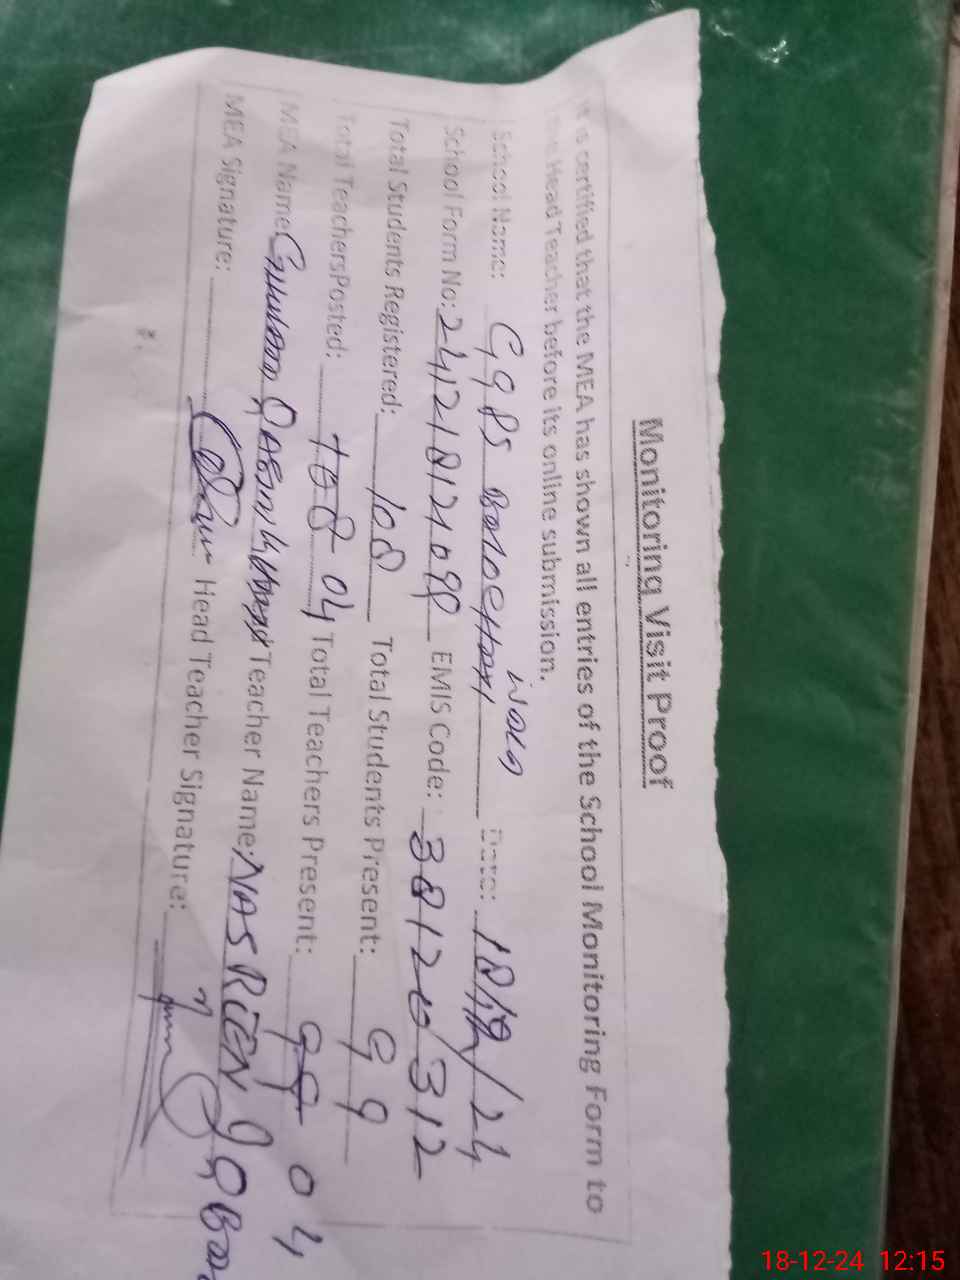 Monitoring Visit Proof
It is certified that the MEA has shown all entries of the School Monitoring Form to
the Head Teacher before its online submission.
School Name: GGPS wala Date: 18/12/24
School Form No: EMIS Code: 38120312
Total Students Registered: 108 Total Students Present: 99
Total Teachers Posted: 04 Total Teachers Present: 04
MEA Name: Teacher Name: NASREEN
MEA Signature: Head Teacher Signature:
18-12-24 12:15